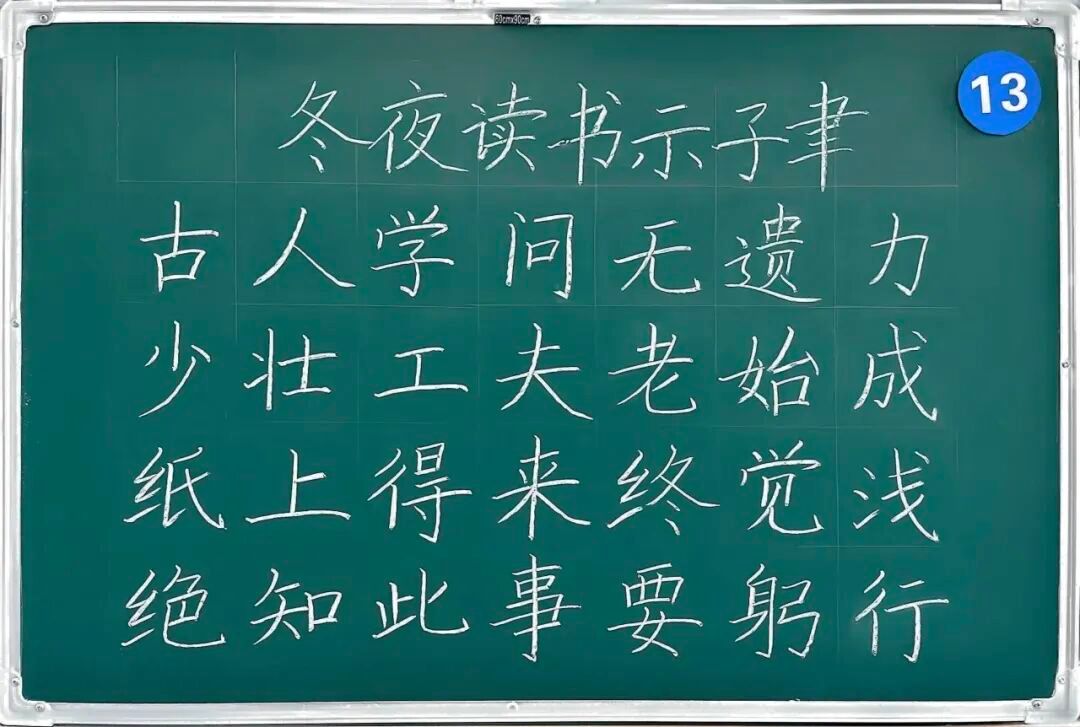 60cmx90cm
13
冬夜读书示子聿
古人学问无遗力
少壮工夫老始成
纸上得来终觉浅
绝知此事要躬行